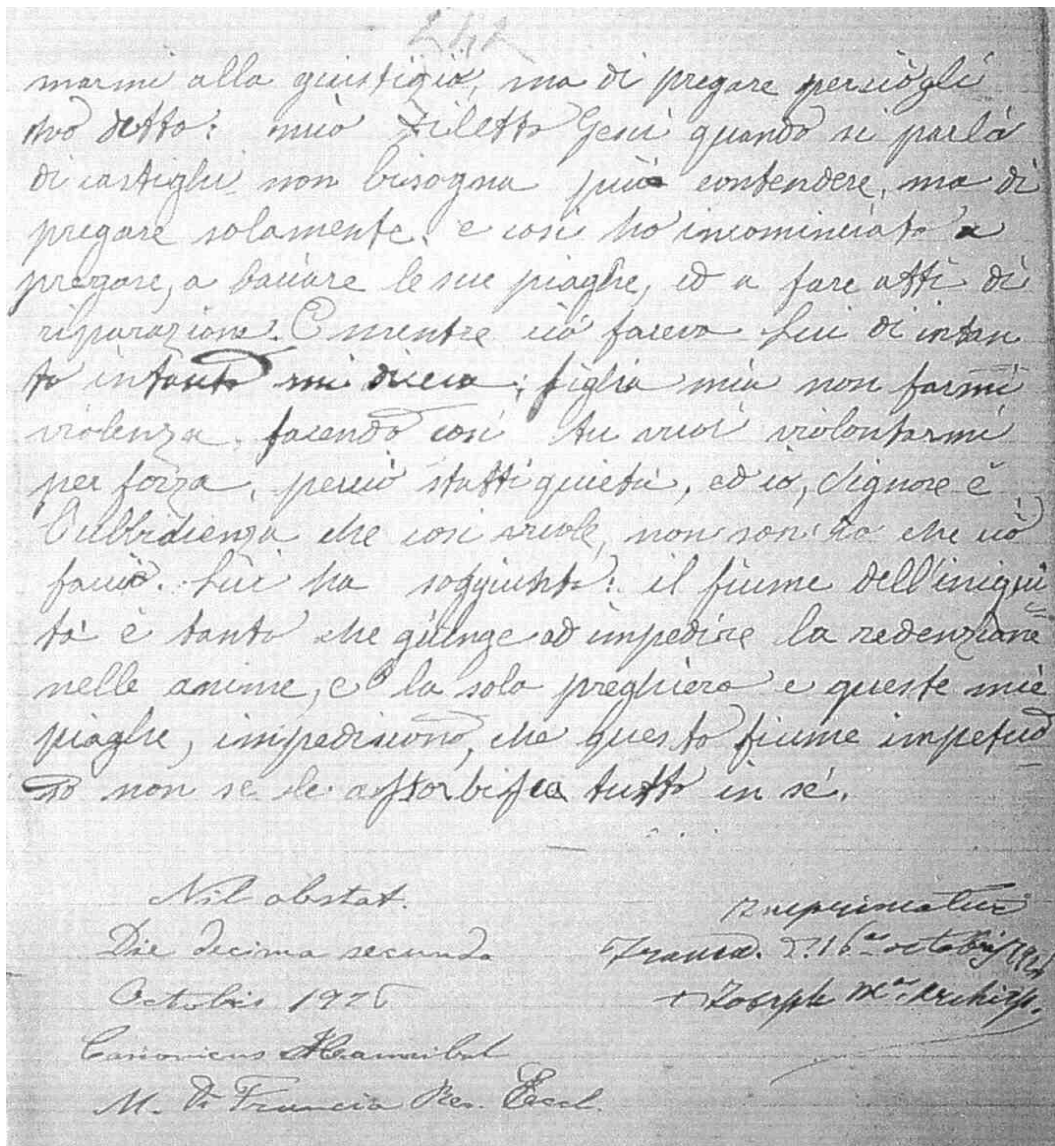 242
marmi alla giustizia, ma di pregare perciò gli
ho detto: mio Diletto Gesù quando si parla
di castighi non bisogna più contendere, ma di
pregare solamente. e così ho incominciato a
pregare, a baciare le sue piaghe, ed a fare atti di
riparazione. E mentre ciò facevo Lui di intan
to intanto mi diceva; figlia mia non farmi
violenza. facendo così tu vuoi violontarmi
per forza, perciò statti quieta, ed io, Signore è
l'ubbidienza che così vuole, non son io che ciò
faccio. Lui ha soggiunto: il fiume dell'iniqui
tà è tanto che giunge ad impedire la redenzione
nelle anime, e la sola preghiera e queste mie
piaghe, impediscono, che questo fiume impetuo
so non se le assorbisca tutto in sé.
Nil obstat.
Die decima secunda
Octobris 1926
Canonicus Hannibal
M. Di Francia Rev. Eccl.
Imprimatur
d. 16 octobris 1926
+ Joseph M. Archiep.